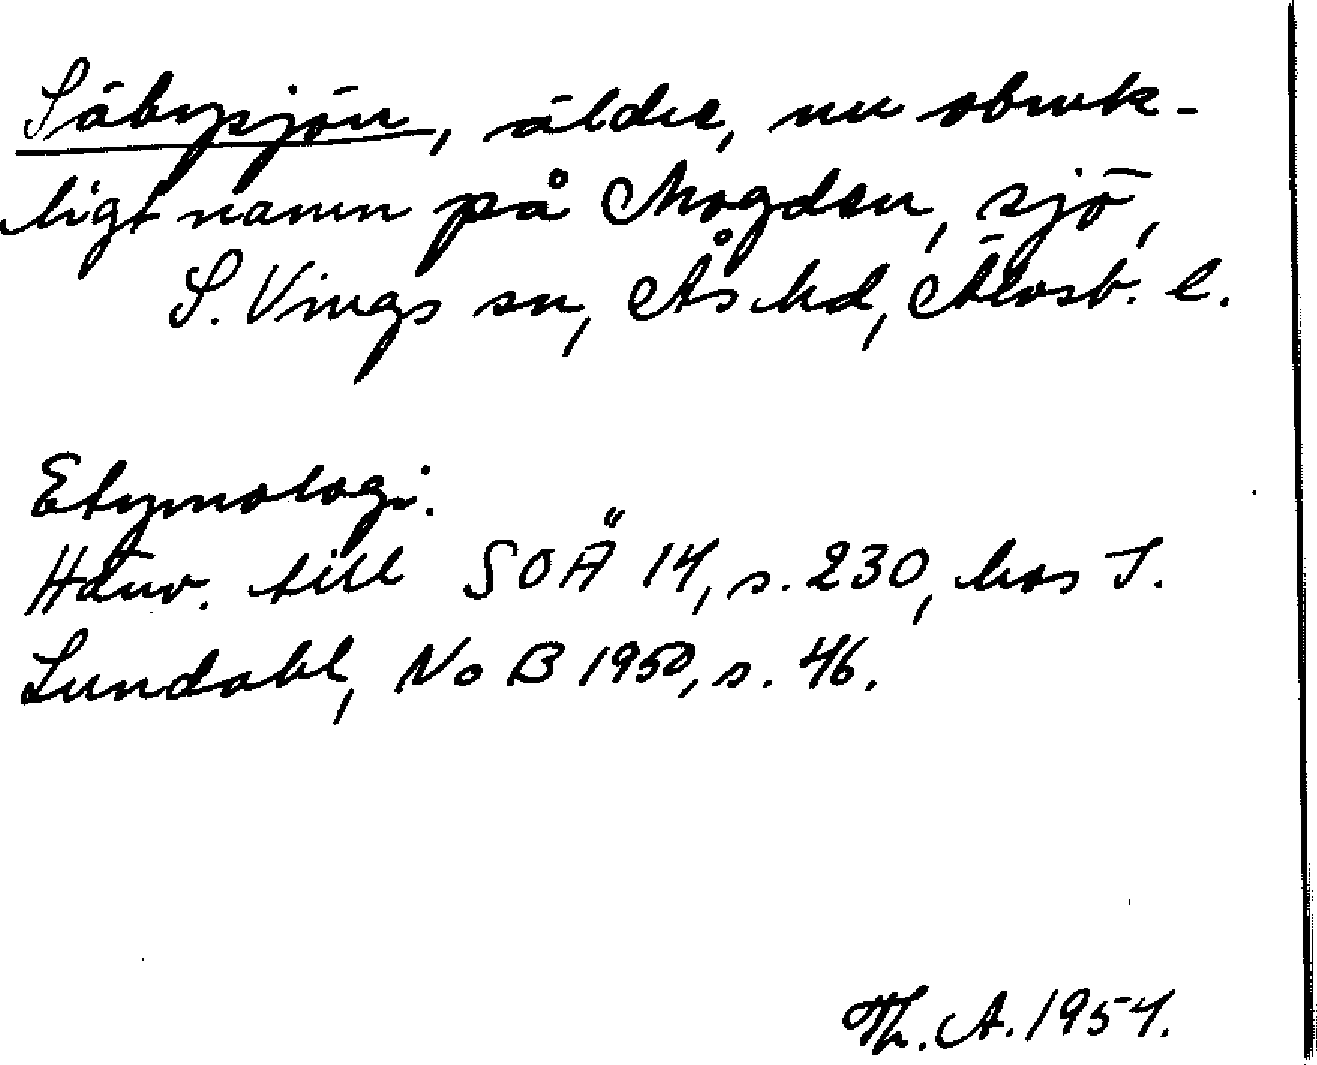 Säbysjön, äldre, nu obruk-
ligt namn på Mogden, sjö,
S. Vings sn, Ås hd, Älvsb. l.
Etymologi.
Hänv. till SOÄ 14, s. 230, hos I.
Lundahl, NoB 1950, s. 46.
Th. A. 1954.